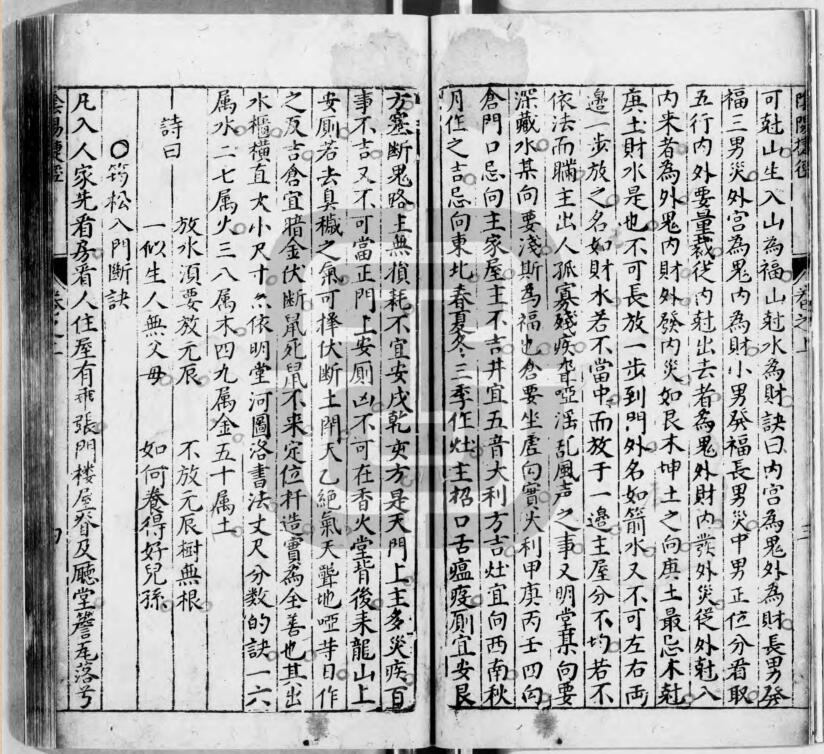 陰陽捷徑
卷之上
三
可尅山生入山為福山尅水為財訣曰内宫為鬼外為財長男發
福三男災外宫為鬼内為財小男發福長男災中男正位分看取
五行内外要量裁從内尅出去者為鬼外財内發外災從外尅入
内来者為外鬼内財外發内災如艮木坤土之向庚土最忌木尅
庚土財水是也不可長放一步到門外名如箭水又不可左右両
邊一步放之名如財水若不當中而放于一邊主屋分不均若不
依法而瞞主出人孤寡殘疾聾啞淫乱風声之事又明堂某向要
深藏水某向要淺斯為福也倉要坐虚向實大利甲庚丙壬四向
倉門口忌向主家屋主不吉井宜五音大利方吉灶宜向西南秋
月作之吉忌向東北春夏冬三季作灶主招口舌瘟疫厠宜安艮
方塞断鬼路上無損耗不宜安戌乾亥方是天門上主多災疾百
事不吉又不可當正門上安厠凶不可在香火堂背後来龍山上
安厠若去臭穢之氣可擇伏断土閉天乙絶氣天聾地啞等日作
之反吉倉宜暗金伏断鼠死鼠不来定位杆造實為全善也其出
水櫃横直大小尺寸亦依明堂河圖洛書法丈尺分数的訣一六
属水二七属火三八属木四九属金五十属土
詩曰
放水須要放元辰　不放元辰樹無根
一似生人無父母　如何養得好兒孫
○筠松入門断訣
凡入人家先看房看人住屋有乖張門楼屋脊及廳堂簷瓦落兮
陰陽捷徑
卷之上
四